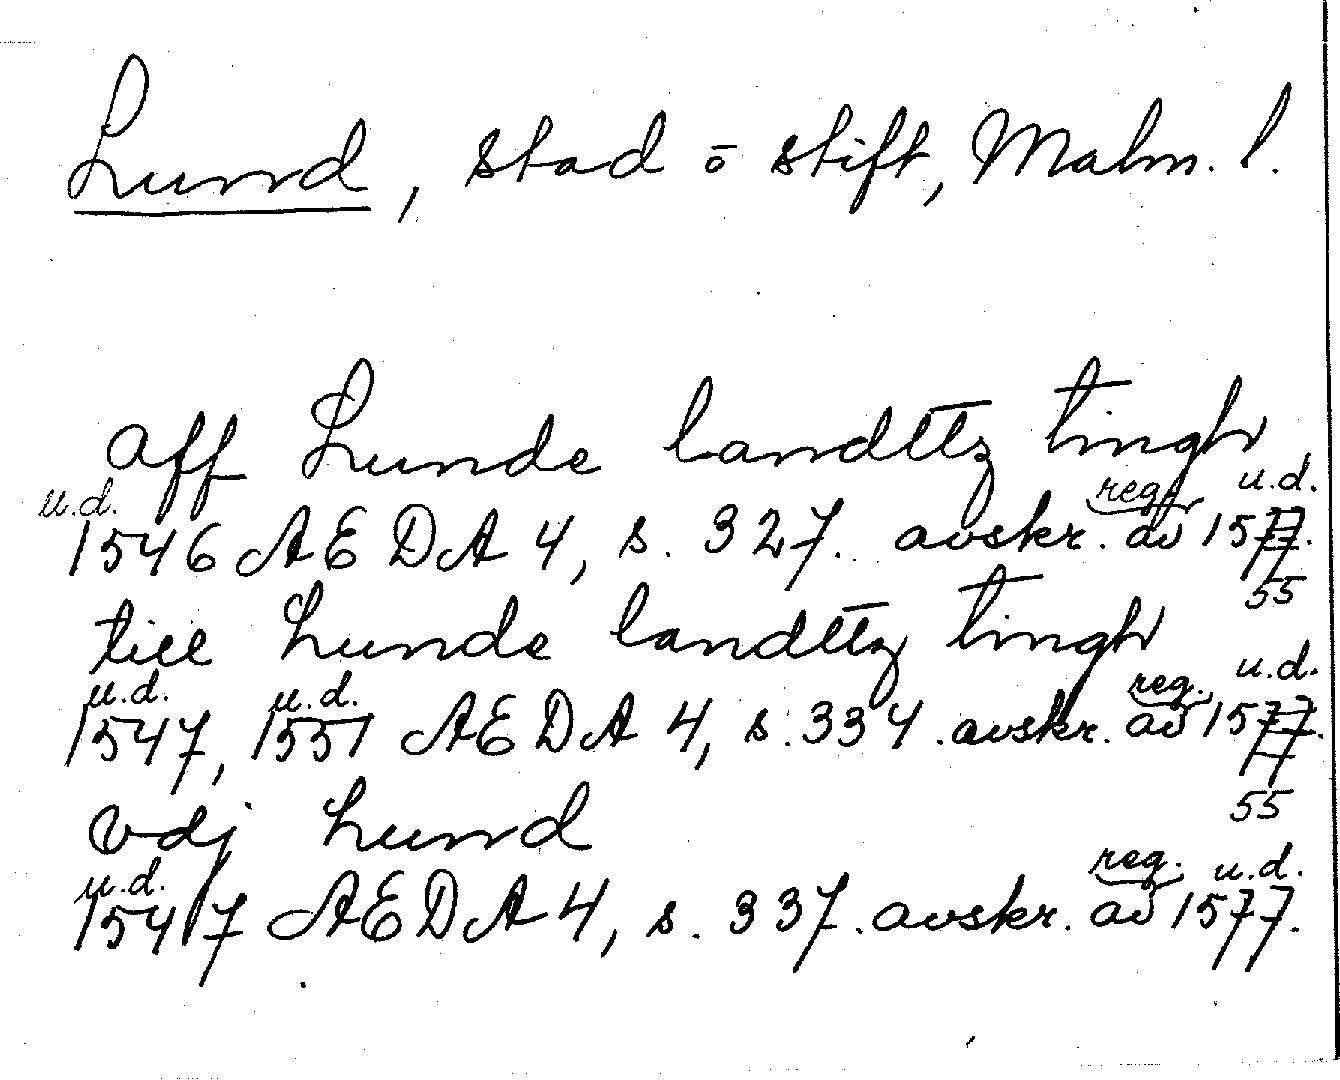 Lund, stad o stift, Malm. l.
aff Lunde landttz tingh
u.d. reg. u.d.
1546 AEDA 4, s. 327. avskr. av 1577.
55
till Lunde landttz tingh
u.d. u.d. reg. u.d.
1547, 1551 AEDA 4, s. 334. avskr. av 1577.
55
vdj Lund
u.d. reg. u.d.
1547 AEDA 4, s. 337. avskr. av 1577.